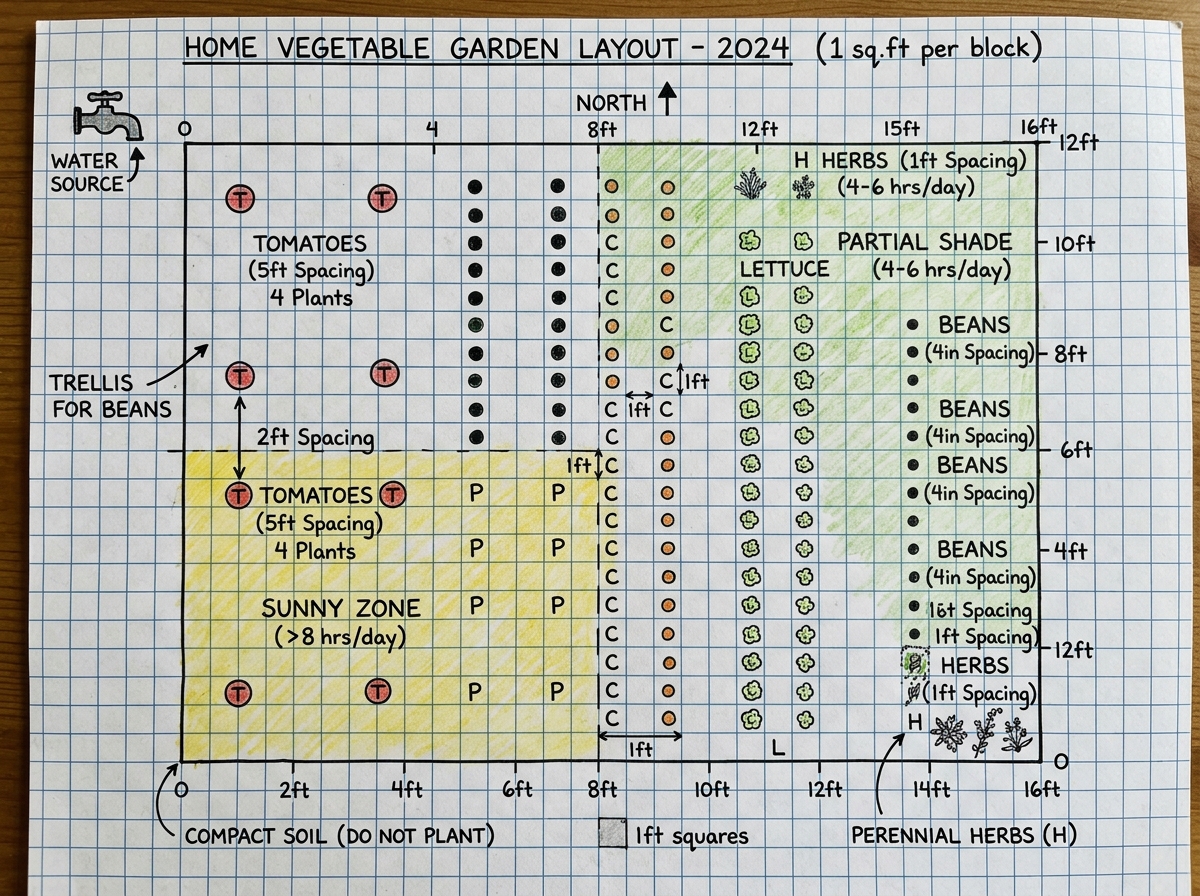 HOME VEGETABLE GARDEN LAYOUT - 2024 (1 sq.ft per block)
NORTH
0 4 8ft 12ft 15ft 16ft
12ft
WATER
SOURCE
H HERBS (1ft Spacing)
(4-6 hrs/day)
T T
TOMATOES
(5ft Spacing)
4 Plants
C
C
C
PARTIAL SHADE
(4-6 hrs/day)
10ft
LETTUCE
BEANS
(4in Spacing)
8ft
TRELLIS
FOR BEANS
T T
C
C 1ft
C 1ft C
C
BEANS
(4in Spacing)
6ft
2ft Spacing
1ft C
BEANS
(4in Spacing)
T TOMATOES T P P C
(5ft Spacing)
4 Plants
C
P P C
BEANS
(4in Spacing)
4ft
C
SUNNY ZONE
(>8 hrs/day)
P P C
C
Spacing
1ft Spacing)
12ft
C
HERBS
(1ft Spacing)
T T P P C
C
H
1ft
L
0
0 2ft 4ft 6ft 8ft 10ft 12ft 14ft 16ft
COMPACT SOIL (DO NOT PLANT)
1ft squares
PERENNIAL HERBS (H)